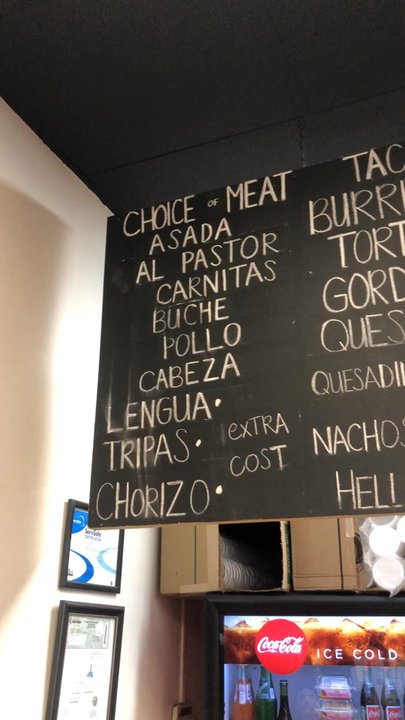 CHOICE OF MEAT
ASADA
AL PASTOR
CARNITAS
BUCHE
POLLO
CABEZA
LENGUA•
TRIPAS• EXTRA
COST
CHORIZO•
TAC
BURRI
TORT
GORD
QUES
QUESADIL
NACHOS
HELL
ServSafe
Coca-Cola
ICE COLD